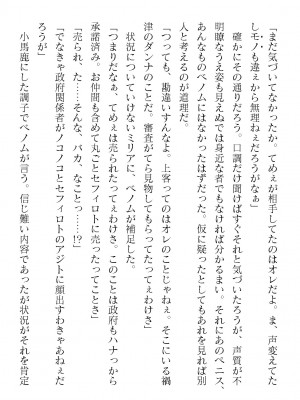 「まだ気づいてなかったか。てめぇが相手してたのはオレだよ。ま、声変えてた
しモノも違ぇから無理ねぇだろうがなぁ」
　確かにその通りだろう。口調だけ聞けばすぐそれと気づいたろうが、声質が不
明瞭なうえ姿も見えぬでは身近な者でもなければ分かるまい。それにあのペニス、
あんなものペノムにはなかったはずだった。仮に疑ったとしてもあれを見れば別
人と考えるのが道理だ。
「つっても、勘違いすんなよ。上客ってのはオレのことじゃねぇ。そこにいる禍
津のダンナのことだ。審査がてら見物してもらってたってぇわけさ」
　状況についていけないミリアに、ペノムが補足した。
「つまりだなぁ、てめぇは売られたってぇわけさ。このことは政府もハナっから
承諾済み。お仲間も含めて丸ごとセフィロトに売ったってことさ」
「売られ、た……そんな、バカ、なことっ……!?」
「でなきゃ政府関係者がノコノコとセフィロトのアジトに顔出すわきゃあねぇだ
ろうが」
　小馬鹿にした調子でペノムが言う。信じ難い内容であったが状況がそれを肯定